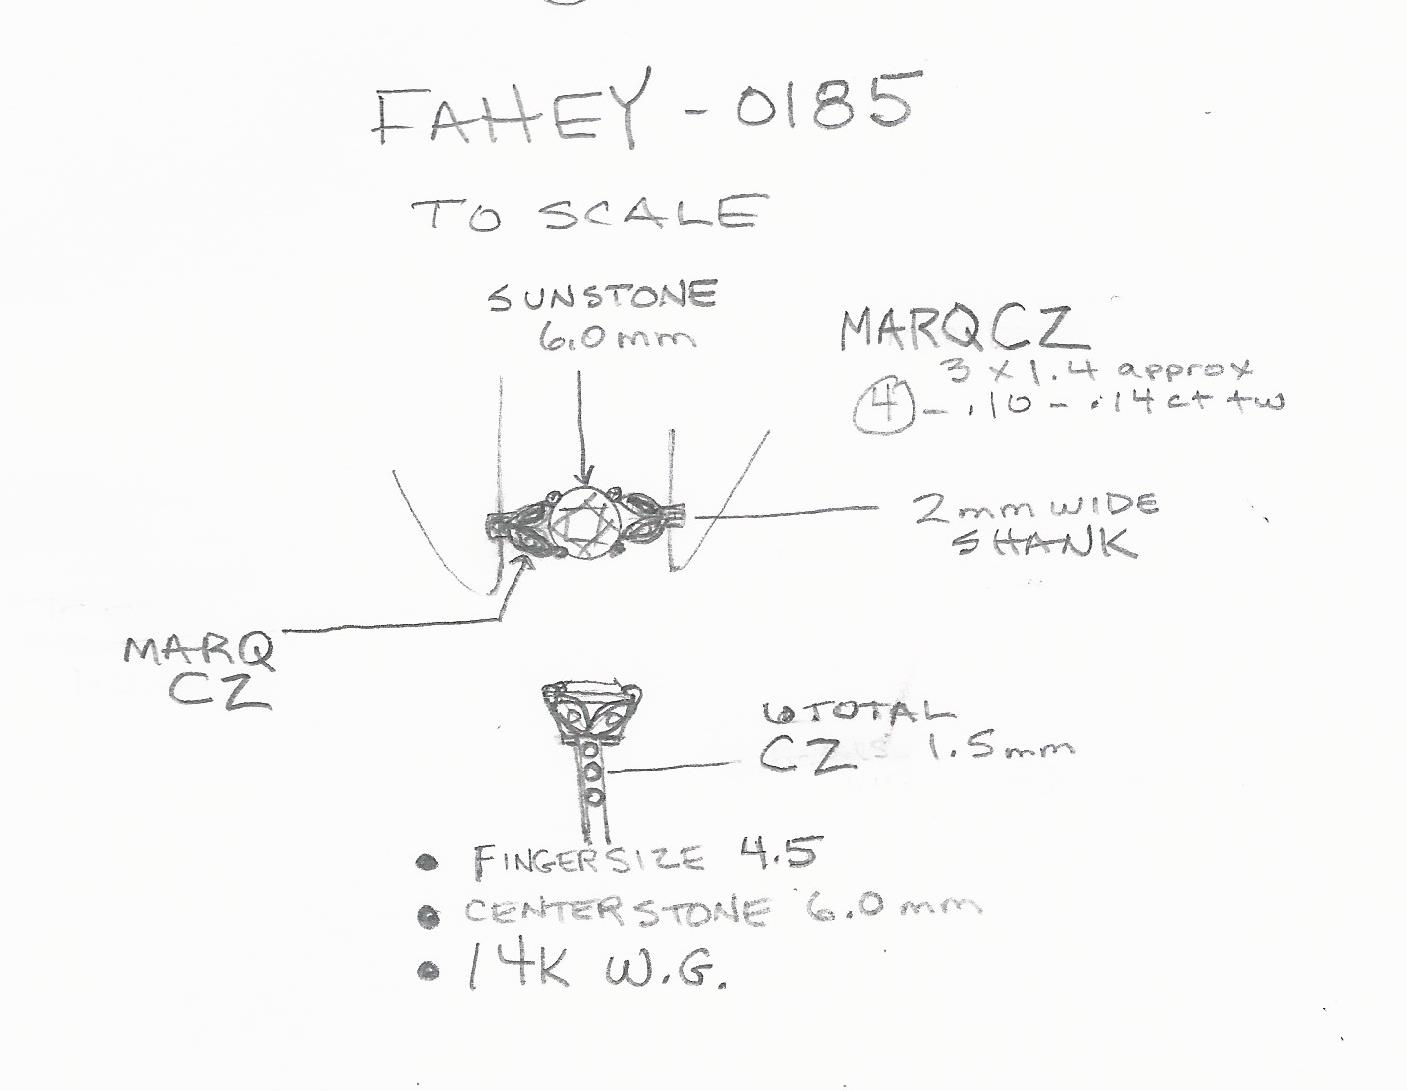 FAHEY - 0185
TO SCALE
SUNSTONE
6.0mm
MARQ CZ
3 x 1.4 approx
4 - .10 - .14 ct tw
2mm WIDE
SHANK
MARQ
CZ
6 TOTAL
CZ 1.5mm
• FINGERSIZE 4.5
• CENTER STONE 6.0mm
• 14K W.G.